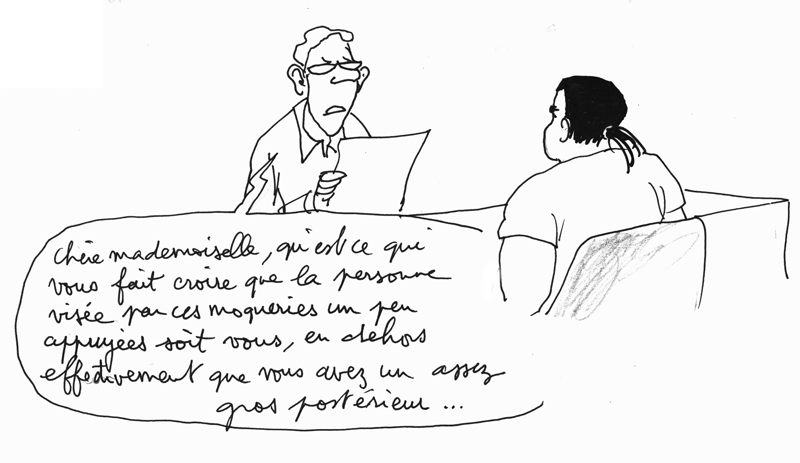 Chère mademoiselle, qu'est ce qui
vous fait croire que la personne
visée par ces moqueries un peu
appuyées soit vous, en dehors
effectivement que vous avez un assez
gros postérieur...